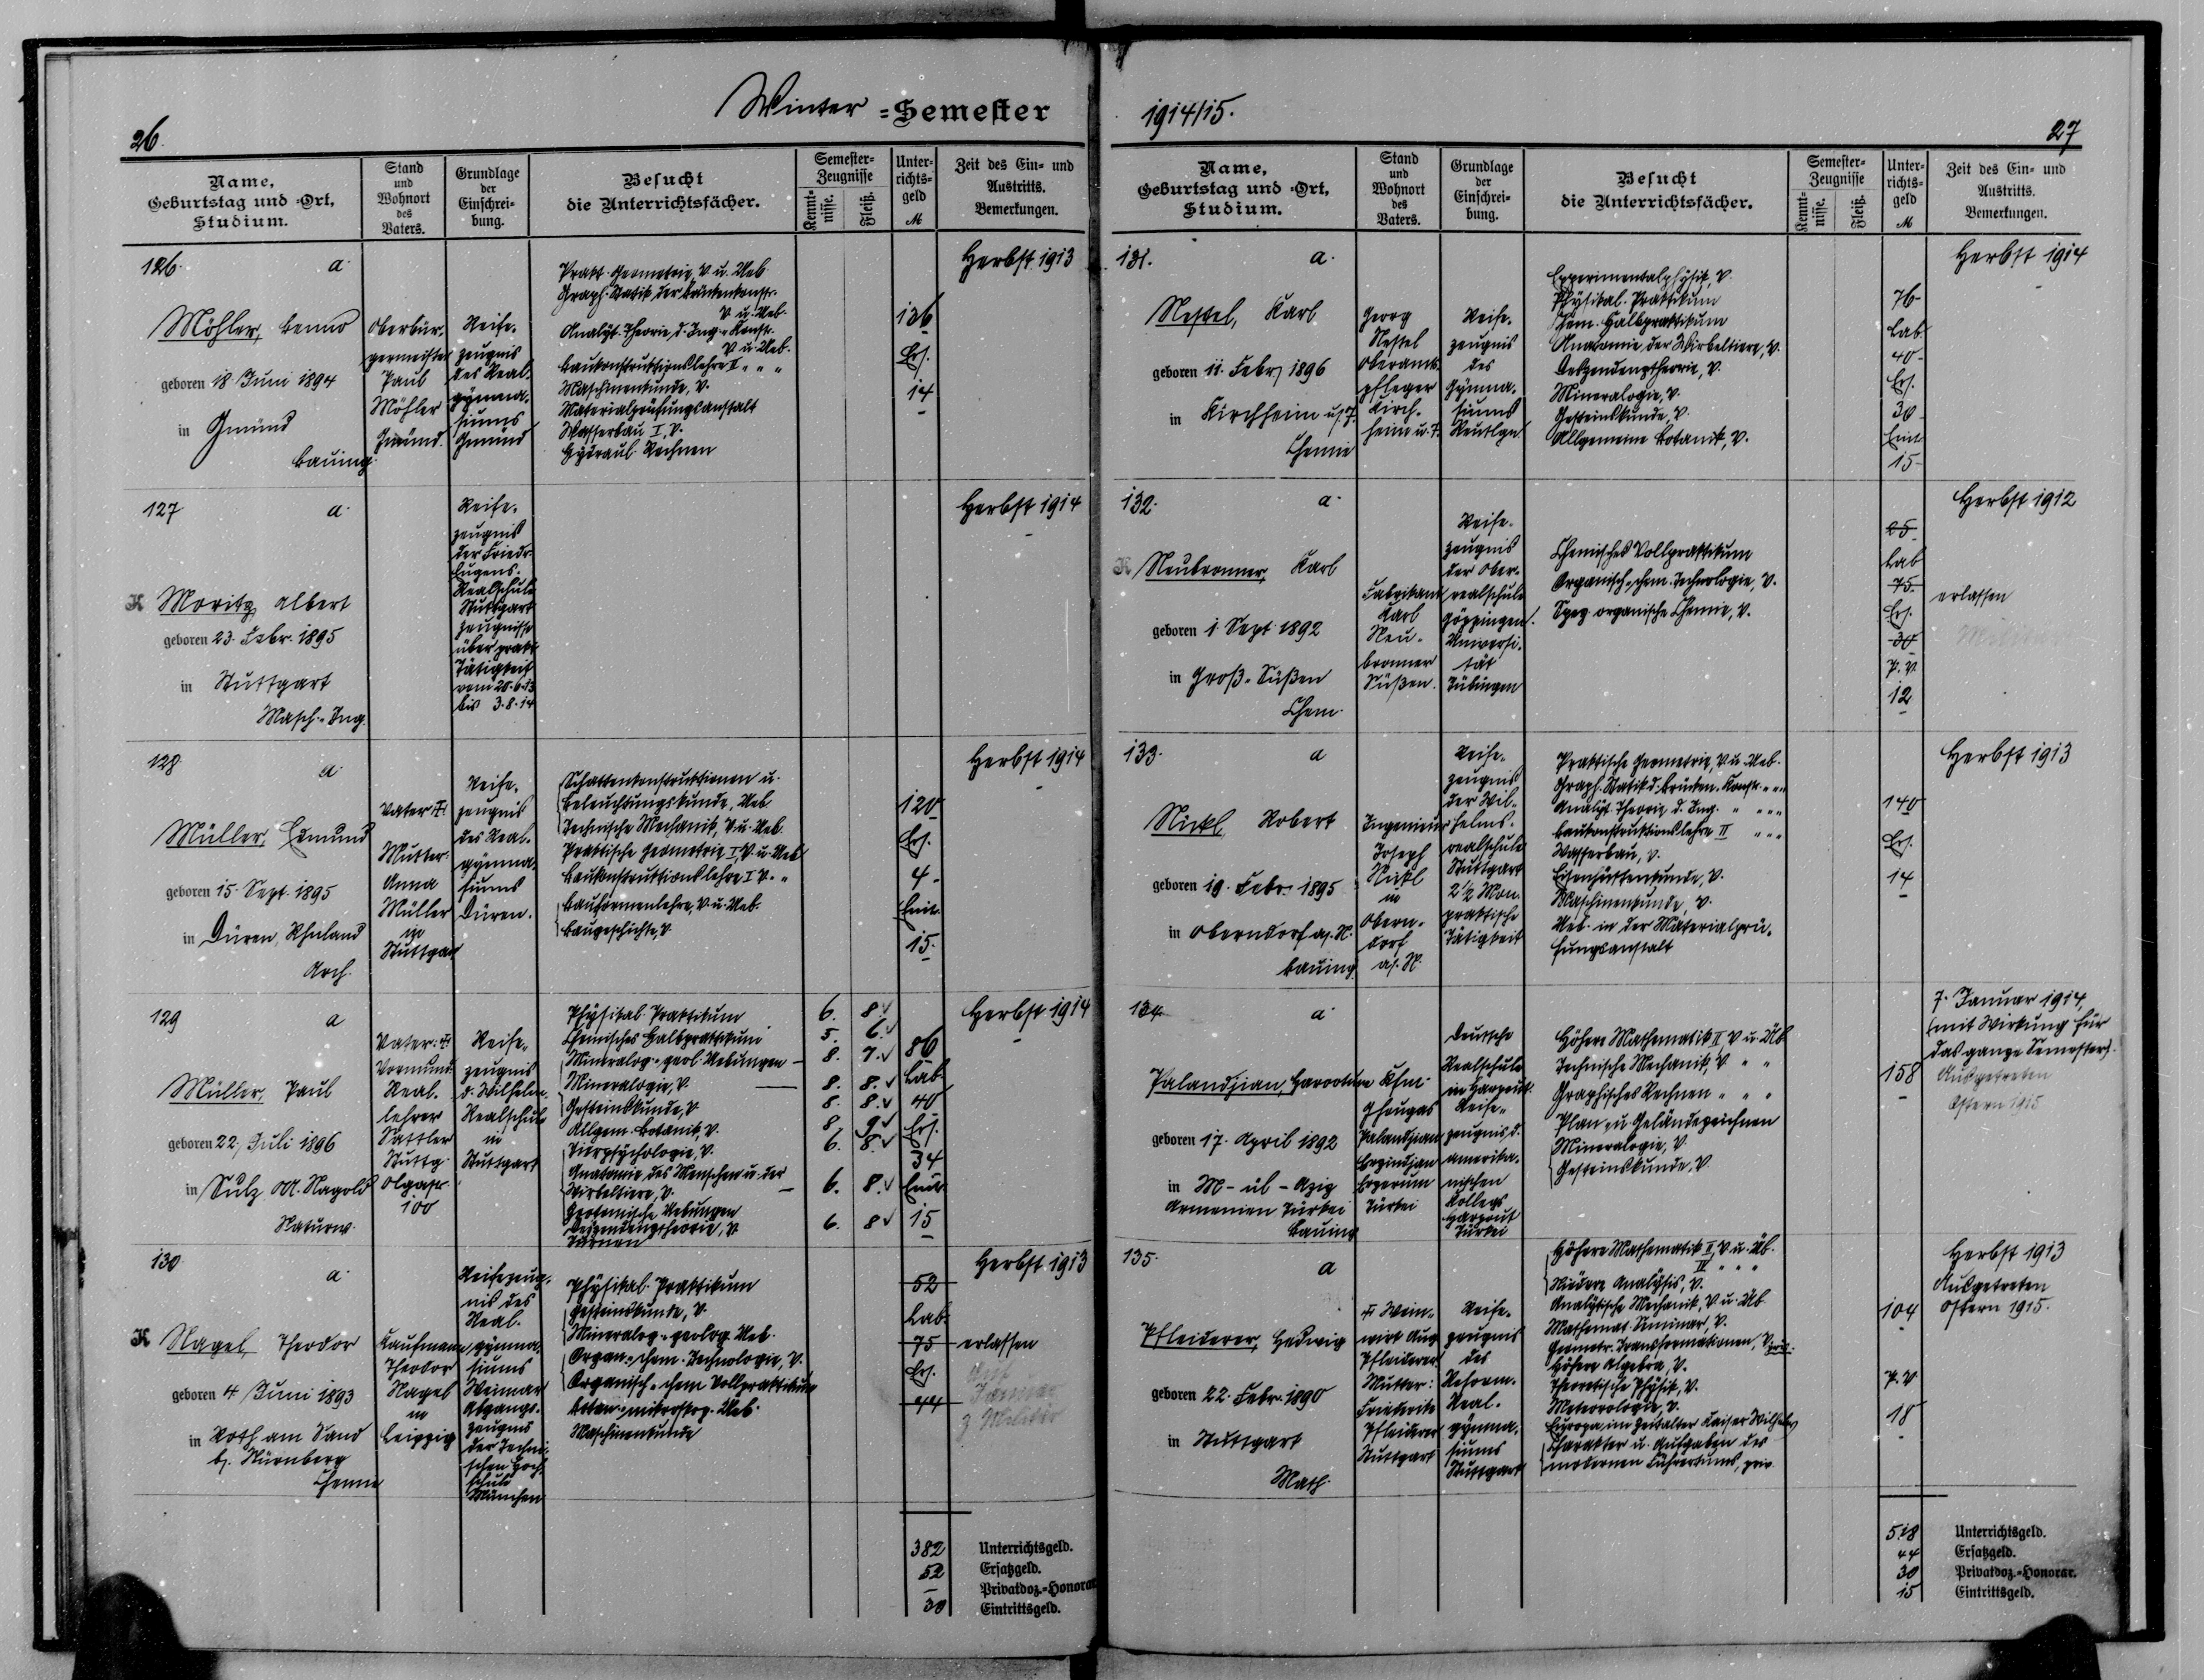 Winter-Semester
26.
Name,
Geburtstag und -Ort,
Studium.
Stand
und
Wohnort
des
Vaters.
Grundlage
der
Einschrei-
bung.
Besucht
die Unterrichtsfächer.
Semester-
Zeugnisse
Kennt-
nisse.
Fleiß.
Unter-
richts-
geld
M
Zeit des Ein- und
Austritts.
Bemerkungen.
126. a.
Möhler, Benno
geboren 18 Juni 1894
in Gmünd
Bauing.
Oberbür-
germeister
Paul
Möhler
Gmünd.
Reife-
zeugnis
des Real-
gymna-
siums
Gmünd
Prakt. Geometrie, V. u. Ueb.
Graph. Statik der Brückenkonstr.
V. u. Ueb.
Analyt. Theorie d. Ing.-Konstr.
V. u. Ueb.
Baukonstruktionslehre II " " "
Maschinenkunde, V.
Materialprüfungsanstalt
Wasserbau I, V.
Hydraul. Rechnen
136
Ers.
14
Herbst 1913
127 a.
K Moritz Albert
geboren 23. Febr. 1895
in Stuttgart
Masch.-Ing.
Reife-
zeugnis
der Friedr.
Eugens-
Realschule
Stuttgart
Zeugnisse
über prakt.
Tätigkeit
vom 20.6.13
bis 3.8.14
Herbst 1914
128 a.
Müller, Edmund
geboren 15. Sept. 1895
in Düren, Rheinland
Arch.
Vater †.
Mutter:
Anna
Müller
in
Stuttgart
Reife-
zeugnis
des Real-
gymna-
siums
Düren.
Schattenkonstruktionen u.
Beleuchtungskunde, Ueb.
Technische Mechanik, V. u. Ueb.
Praktische Geometrie I, V. u. Ueb.
Baukonstruktionslehre I V. "
Bauformenlehre, V. u. Ueb.
Baugeschichte, V.
120
Ers.
4
Eint.
15
Herbst 1914
129 a
Müller, Paul
geboren 22. Juli 1896
in Sulz OA. Nagold
Naturw.
Vater: †
Vormund:
Real-
lehrer
Sattler
Stuttg.
Olgastr.
100
Reife-
zeugnis
d. Wilhelm-
Realschule
in
Stuttgart
Physikal. Praktikum 6. 8.
Chemisches Halbpraktikum 5. 6.
Mineralog.-geol. Uebungen 8. 7.
Mineralogie, V. 8. 8.
Gesteinskunde, V. 8. 8.
Allgem. Botanik, V. 8. 9.
Tierpsychologie, V. 6. 8.
Anatomie des Menschen u. der
Wirbeltiere, V. 6. 8.
Uebungen
Deszendenztheorie, V. 6. 8
Turnen
86
Lab.
40
Ers.
34
Eint.
15
Herbst 1914
130 a.
K Nagel, Theodor
geboren 4 Juni 1893
in Roth am Sand
b. Nürnberg
Chemie
Kaufmann
Theodor
Nagel
in
Leipzig
Reifezeug-
nis des
Real-
gymna-
siums
Weimar
Abgangs-
zeugnis
der Techni-
schen Hoch-
schule
München
Physikal. Praktikum
Gesteinskunde, V.
Mineralog.-geolog. Ueb.
Organ.-chem. Technologie, V.
Organisch-chem. Vollpraktikum
Botan.-mikroskop. Ueb.
Maschinenkunde
52
Lab.
75
Ers.
44
Herbst 1913
erlassen
Januar
z. Militär
382 Unterrichtsgeld.
52 Ersatzgeld.
– Privatdoz.-Honorar.
30 Eintrittsgeld.
1914/15.
27
Name,
Geburtstag und -Ort,
Studium.
Stand
und
Wohnort
des
Vaters.
Grundlage
der
Einschrei-
bung.
Besucht
die Unterrichtsfächer.
Semester-
Zeugnisse
Kennt-
nisse.
Fleiß.
Unter-
richts-
geld
M
Zeit des Ein- und
Austritts.
Bemerkungen.
131. a.
Nestel, Karl
geboren 11. Febr. 1896
in Kirchheim u/T.
Chemie
Georg
Nestel
Oberamts-
pfleger
Kirch-
heim u. T.
Reife-
zeugnis
des
Gymna-
siums
Reutlgn.
Experimentalphysik, V.
Physikal. Praktikum
Chem. Halbpraktikum
Anatomie der Wirbeltiere, V.
Deszendenztheorie, V.
Mineralogie, V.
Gesteinskunde, V.
Allgemeine Botanik, V.
76
Lab.
40
Ers.
30
Eint.
15
Herbst 1914
132. a.
K Neubronner, Karl
geboren 1 Sept. 1892
in Groß-Süßen
Chem.
Fabrikant
Karl
Neu-
bronner
Süßen.
Reife-
zeugnis
der Ober-
realschule
Göppingen.
Universi-
tät
Tübingen
Chemisches Vollpraktikum
Organisch-chem. Technologie, V.
Spez. organische Chemie, V.
25
Lab
75
Ers.
30
P. V.
12
Herbst 1912
erlassen
133. a
Nickl, Robert
geboren 19. Febr. 1895
in Oberndorf a/N.
Bauing.
Ingenieur
Joseph
Nickl
in
Obern-
dorf
a/N.
Reife-
zeugnis
der Wil-
helms-
realschule
Stuttgart
2½ Mon.
praktische
Tätigkeit
Praktische Geometrie, V. u. Ueb.
Graph. Statik d. Brücken-Konstr. " " "
Analyt. Theorie d. Ing. " " " "
Baukonstruktionslehre II " " "
Wasserbau, V.
Eisenhüttenkunde, V.
Maschinenkunde, V.
Ueb. in der Materialprü-
fungsanstalt
140
Ers.
14
Herbst 1913
134. a.
Palandjian, Harootune
geboren 17. April 1892
in M-ül-Aziz
Armenien Türkei
Bauing
Kfm.
Ghougas
Palandjian
Erzindjan
Erzerum
Türkei
Deutsche
Realschule
in Harpout.
Reife-
zeugnis d.
amerika-
nischen
Kollegs
Harpout
Türkei
Höhere Mathematik II V. u. Üb.
Technische Mechanik, V. " "
Graphisches Rechnen " " "
Plan- u. Geländezeichnen
Mineralogie, V.
Gesteinskunde, V.
158
7. Januar 1914,
(mit Wirkung für
das ganze Semester).
Ausgetreten
Ostern 1915
135. a
Pfleiderer, Hedwig
geboren 22. Febr. 1890
in Stuttgart
Math.
† Wein-
wirt Aug.
Pfleiderer
Mutter:
Friederike
Pfleiderer
Stuttgart
Reife-
zeugnis
des
Reform-
Real-
gymna-
siums
Stuttgart
Höhere Mathematik II, V. u. Üb.
IV " " "
Niedere Analysis, V.
Analytische Mechanik, V. u. Üb.
Mathemat. Seminar, V.
Geometr. Transformationen, V. priv.
Höhere Algebra, V.
Theoretische Physik, V.
Meteorologie, V.
Europa im Zeitalter Kaiser Wilhelms
Charakter u. Aufgaben des
modernen Führertums, priv.
104
P. V.
18
Herbst 1913
Ausgetreten
Ostern 1915.
518 Unterrichtsgeld.
44 Ersatzgeld.
30 Privatdoz.-Honorar.
15 Eintrittsgeld.